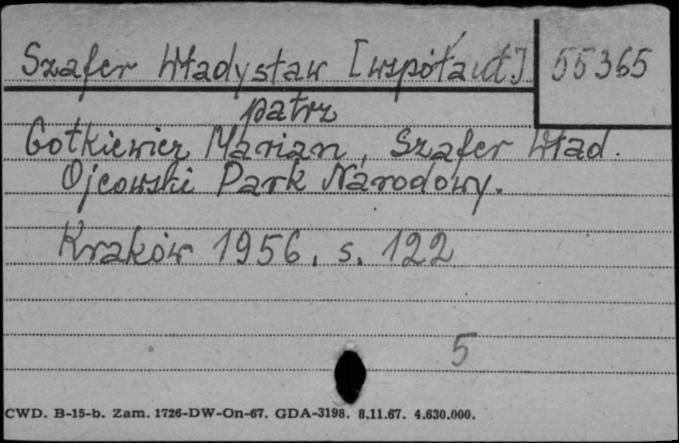 Szafer Władysław [współaut.] 55365
patrz
Gotkiewicz Marian, Szafer Wład.
Ojcowski Park Narodowy.
Kraków 1956. s. 122
5
CWD. B-15-b. Zam. 1726-DW-On-67. GDA-3198. 8.11.67. 4.630.000.